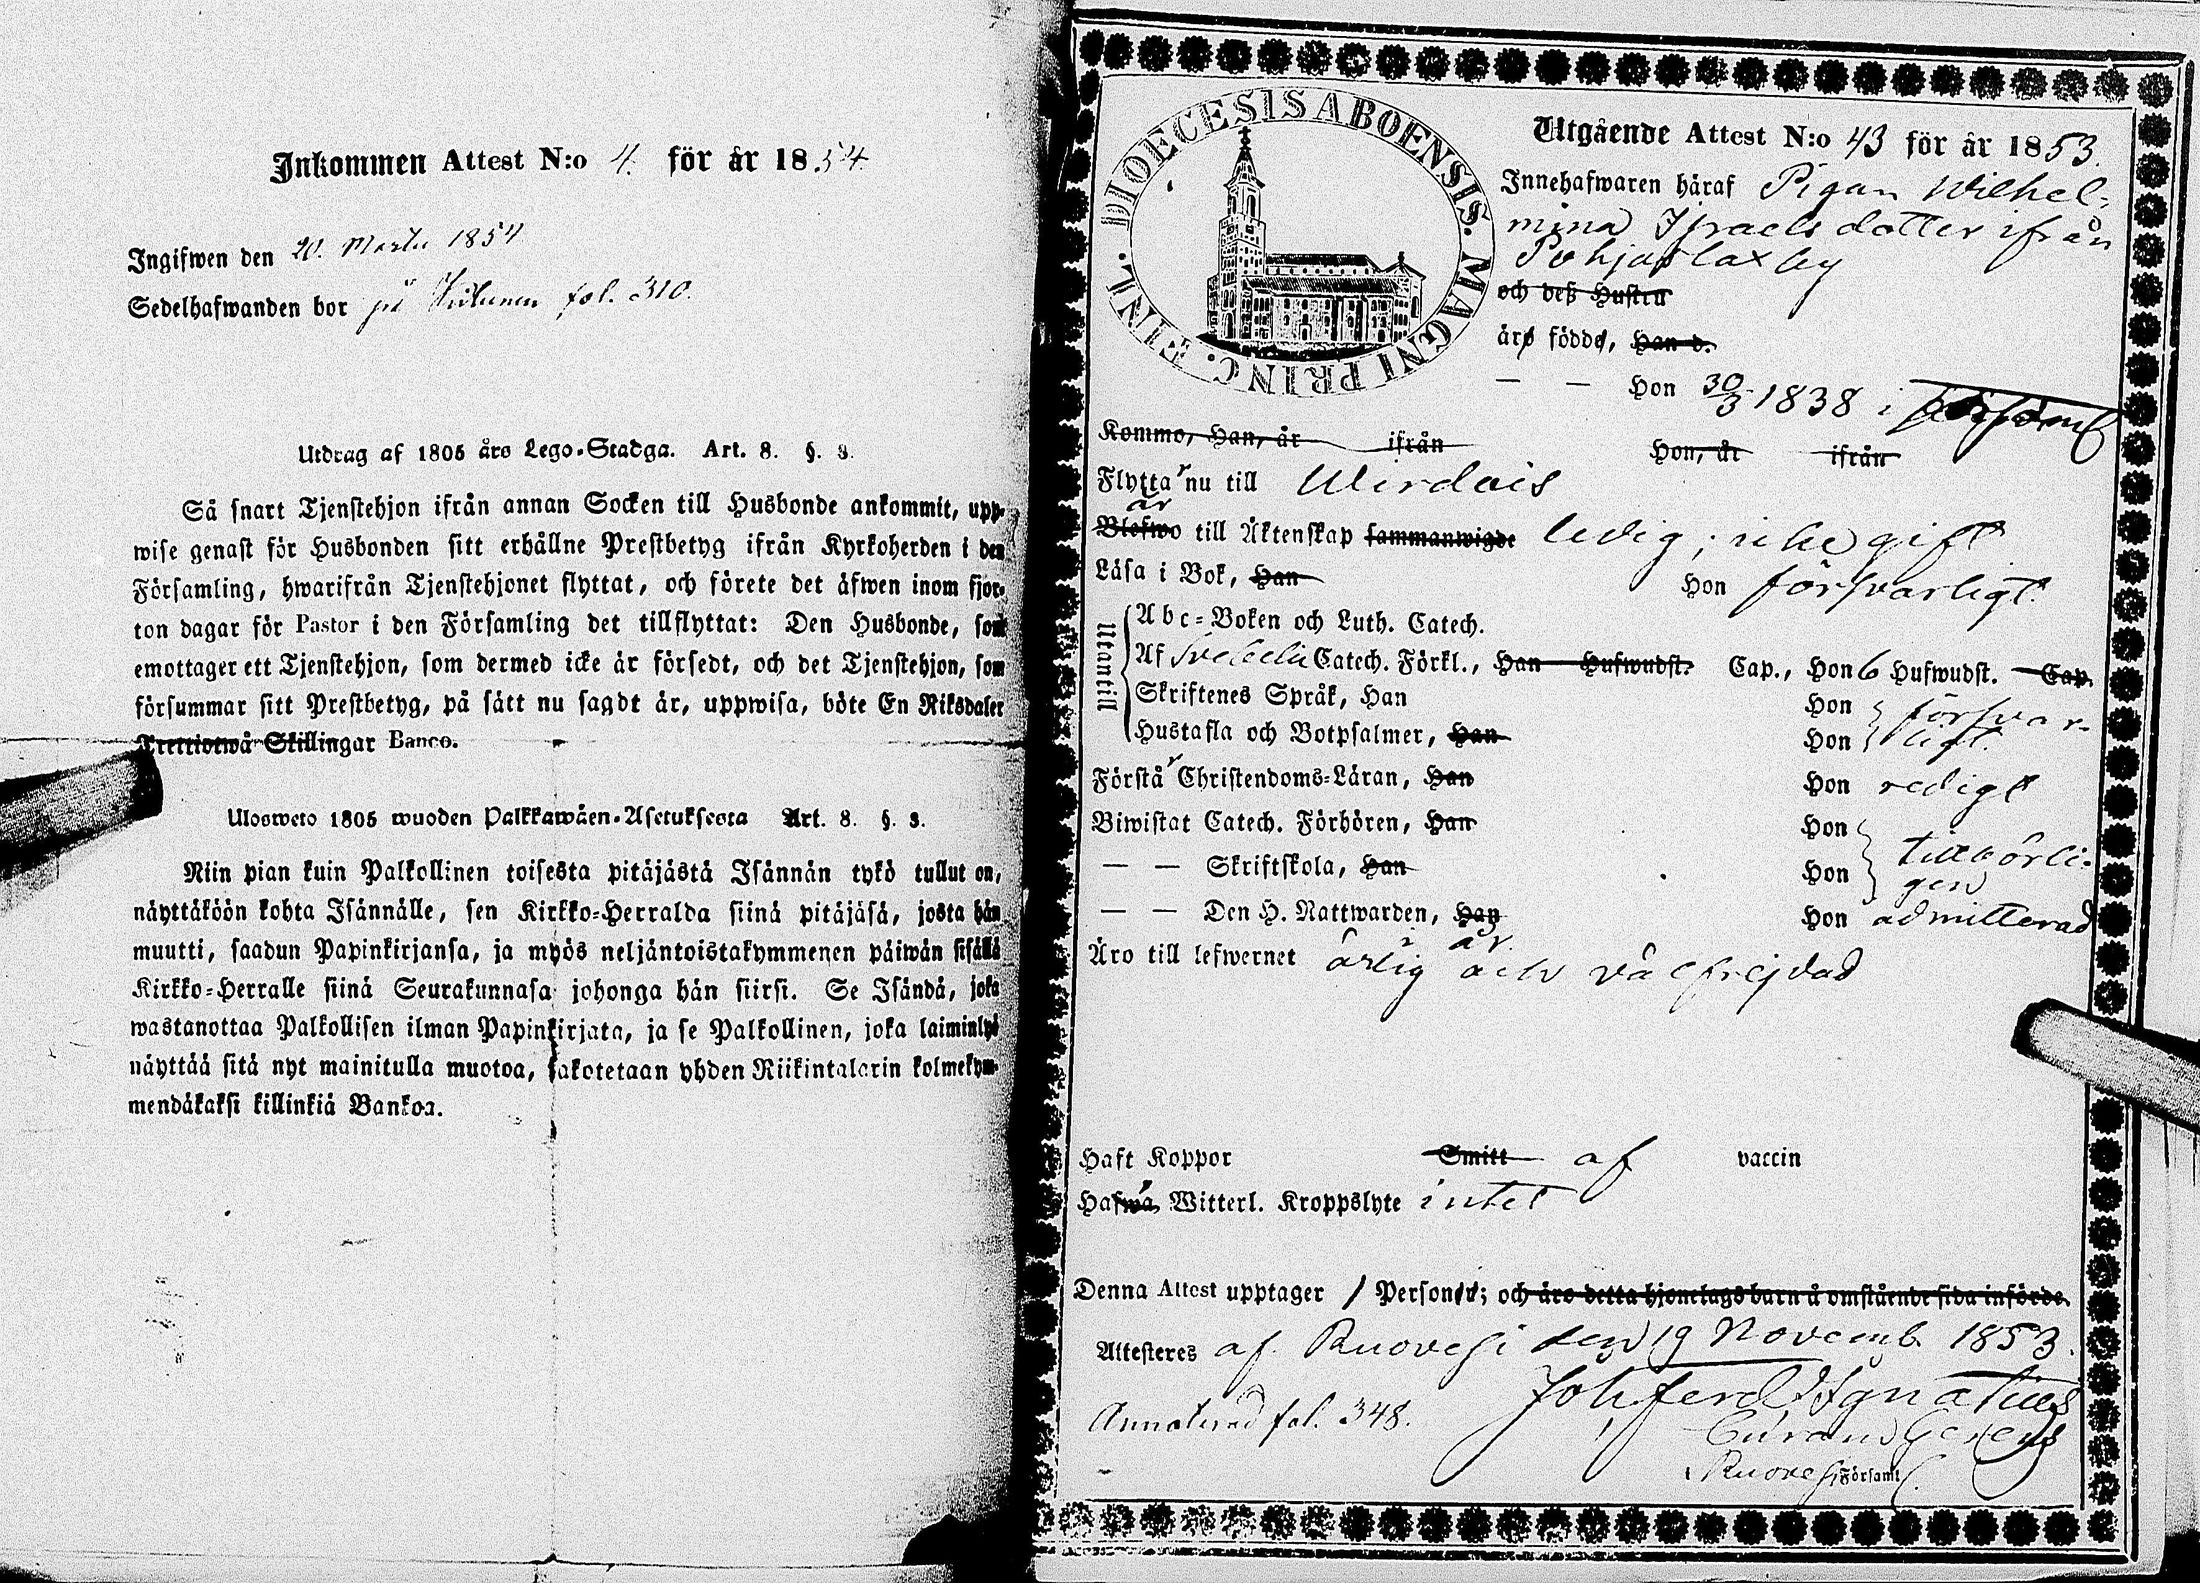 Inkommen Attest N:o 4. för år 1854.
Ingifwen den 20. Martii 1854
Sedelhafwanden bor på fol. 310.
Utdrag af 1805 års Lego-Stadga. Art. 8. §. 3.
Så snart Tjenstehjon ifrån annan Socken till Husbonde ankommit, upp-
wise genast för Husbonden sitt erhållne Prestbetyg ifrån Kyrkoherden i den
Församling, hwarifrån Tjenstehjonet flyttat, och förete det äfwen inom fjor-
ton dagar för Pastor i den Församling det tillflyttat: Den Husbonde, som
emottager ett Tjenstehjon, som dermed icke är försedt, och det Tjenstehjon, som
försummar sitt Prestbetyg, på sätt nu sagdt är, uppwisa, böte En Riksdaler
Trettiotwå Skillingar Banco.
Ulosweto 1805 wuoden Palkkawäen-Asetuksesta Art. 8. §. 3.
Niin pian kuin Palkollinen toisesta pitäjästä Isännän tykö tullut on,
näyttäköön kohta Isännälle, sen Kirkko-Herralda siinä pitäjäsä, josta hän
muutti, saadun Papinkirjansa, ja myös neljäntoistakymmenen päiwän sisällä
Kirkko-Herralle siinä Seurakunnasa johonga hän siirsi. Se Isändä, joka
wastanottaa Palkollisen ilman Papinkirjata, ja se Palkollinen, joka laiminlyö
näyttää sitä nyt mainitulla muotoa, sakotetaan yhden Riikintalarin kolmekym-
mendäkaksi killinkiä Bankoa.
DIOECESIS ABOENSIS. MAGNI PRINC. FINL.
Utgående Attest N:o 43 för år 1853.
Innehafwaren häraf Pigan Wilhel-
mina Israels dotter ifrån
Pohjaslax by
och deß Hustru
äro födde, Han d.
— — Hon 30/3 1838 i
Kommo, Han, år ifrån Hon, år ifrån
Flyttar nu till Wirdois
är
Blefwo till Äktenskap sammanwigde ledig; icke gift
Läsa i Bok, Han Hon försvarligt
Utantill
Abc-Boken och Luth. Catech.
Af Svebelii Catech. Förkl., Han Hufwudst. Cap., Hon 6 Hufwudst. Cap.
Skriftenes Språk, Han Hon försvar-
Hustafla och Botpsalmer, Han Hon ligt.
Förstår Christendoms-Läran, Han Hon redigt
Biwistat Catech. Förhören, Han Hon tillbörli-
— — Skriftskola, Han Hon gen
— — Den H. Nattwarden, Han Hon admitterad
i år.
Äro till lefwernet ärlig och välfrejdad
Haft Koppor Smitt af vaccin
Hafwa Witterl. Kroppslyte intet
Denna Attest upptager 1 Person; och äro detta hjonelags barn å omstående sida införde.
Attesteres af Ruovesi den 19 Novemb. 1853.
Joh ferd Ignatius
Annoterad fol. 348.
Ruovesi Församl.